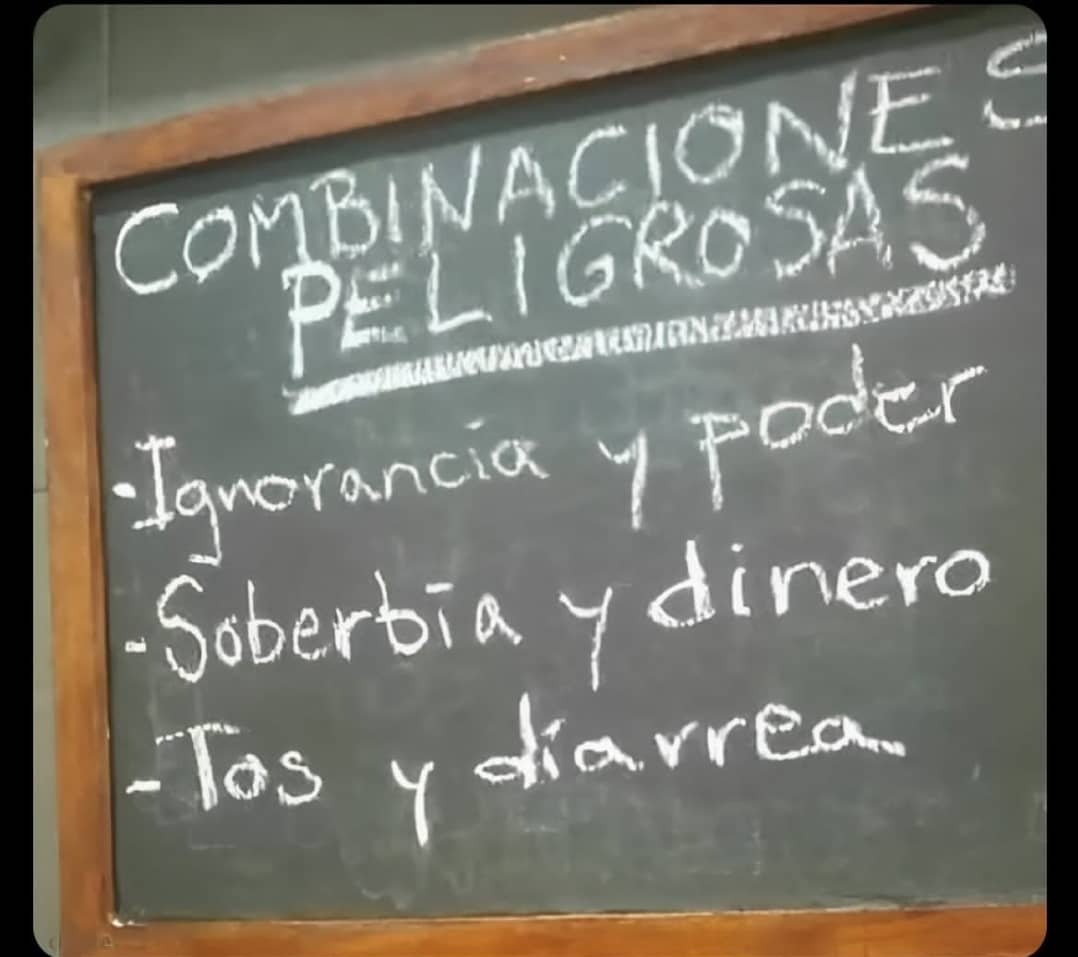 COMBINACIONES
PELIGROSAS
·Ignorancia y poder
-Soberbia y dinero
-Tos y diarrea